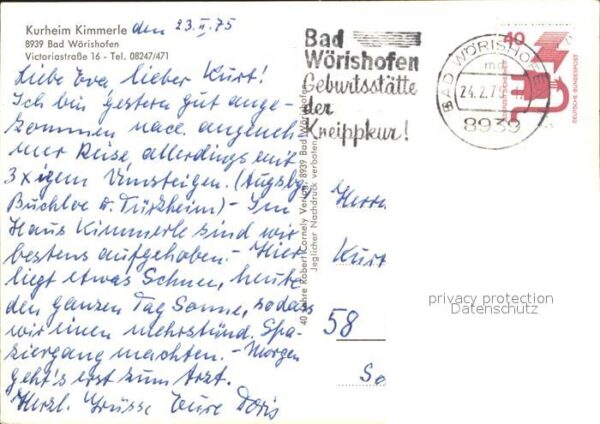 Kurheim Kimmerle
8939 Bad Wörishofen
Victoriastraße 16 - Tel. 08247/471
den 23.II.75
Liebe Eva lieber Kurt!
Ich bin gestern gut ange-
kommen nach angeneh-
mer Reise, allerdings mit
3x igem Umsteigen. (Augsbg,
Buchloe u. Türkheim) - Im
Haus Kimmerle sind wir
bestens aufgehoben. - Hier
liegt etwas Schnee, heute
den ganzen Tag Sonne, sodass
wir einen mehrstünd. Spa-
ziergang machten. - Morgen
geht's erst zum Arzt.
Herzl. Grüsse Eure Doris
40 Jahre Robert Cornely Verlag, 8939 Bad Wörishofen
Jeglicher Nachdruck verboten
Bad
Wörishofen
Geburtsstätte
der
Kneippkur!
BAD WÖRISHOFEN
24.2.75
8939
40
DEUTSCHE BUNDESPOST
Herrn
Kurt
58
privacy protection
Datenschutz